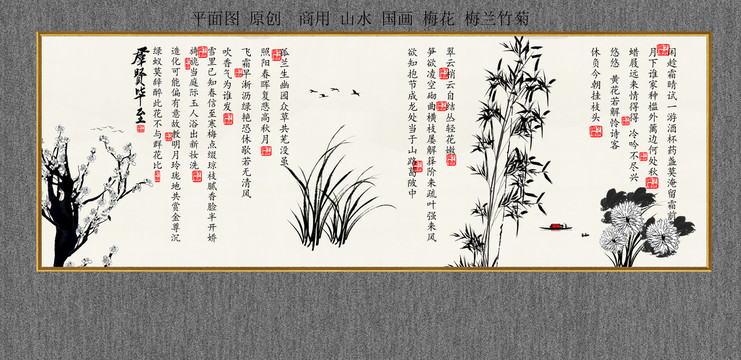 平面图 原创 商用 山水 国画 梅花 梅兰竹菊
闲趁霜晴试一游 酒杯药盏莫淹留 霜前
月下谁家种 槛外篱边何处秋
蜡屐远来情得得 冷吟不尽兴
悠悠 黄花若解怜诗客
休负今朝挂枝头
翠云梢云自结丛 轻花嫩
笋欲凌空 砌曲横枝屡解箨 阶来疏叶强来风
欲知抱节成龙处 当于山路葛陂中
孤兰生幽园 众草共芜没 虽
照阳春晖 复悲高秋月
飞霜早淅沥 绿艳恐休歇 若无清风
吹 香气为谁发
雪里已知春信至 寒梅点缀琼枝腻 香脸半开娇
旖旎 当庭际 玉人浴出新妆洗
造化可能偏有意 故教明月玲珑地 共赏金尊沉
绿蚁 莫辞醉 此花不与群花比
群贤毕至